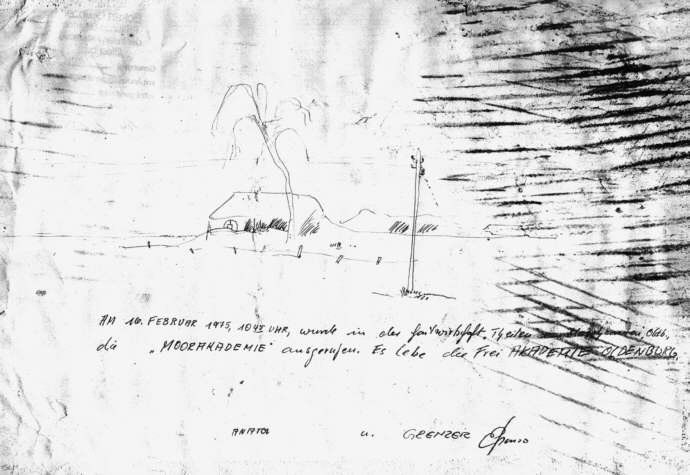 AM 16. FEBRUAR 1975, 10 45 UHR, wurde in der Gastwirtschaft
die „MOORAKADEMIE" ausgerufen. Es lebe die Frei AKADEMIE OLDENBURG.
ANATOL u. GRENZER